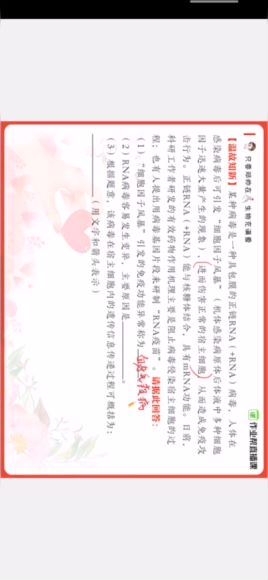 只要项你在 生物王课爱
作业帮直播课
【温故知新】某种病毒是一种具包膜的正链RNA(+RNA)病毒,人体在
感染病毒后可引发“细胞因子风暴”(机体感染病原体后体液中多种细胞
因子迅速大量产生的现象),进而伤害正常的宿主细胞,从而造成免疫攻
击行为。正链RNA(+RNA)能与核糖体结合,具有mRNA功能。目前,
科研工作者研发的有效药物作用机理主要是阻止病毒侵染宿主细胞的过
程;也有人提出用病毒基因片段来研制“RNA疫苗”。请据此回答:
(1)“细胞因子风暴”引发的免疫功能异常称为 自身免疫病
(2)RNA病毒容易发生变异,主要原因是________。
(3)根据题意,该病毒在宿主细胞内的遗传信息传递过程可概括为:
________(用文字和箭头表示)